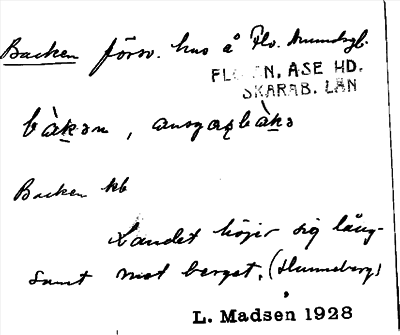 Backen försv. hus å Flo
FLO AN, ASE HD.
SKARAB. LÄN
bàkən, ansgarbàkə
Backen kb
Landet höjer sig lång-
samt mot berget. (Hunneberg)
L. Madsen 1928